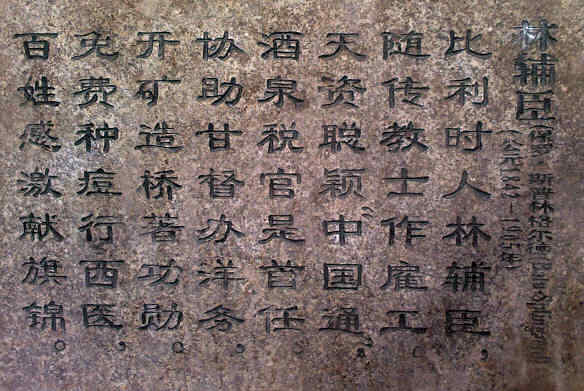 林辅臣
(公元1842—
比利时人林辅臣，
随传教士作雇工。
天资聪颖“中国通”，
酒泉税官是首任，
协助甘督办洋务，
开矿造桥著功勋。
免费种痘行西医，
百姓感激献旗锦。